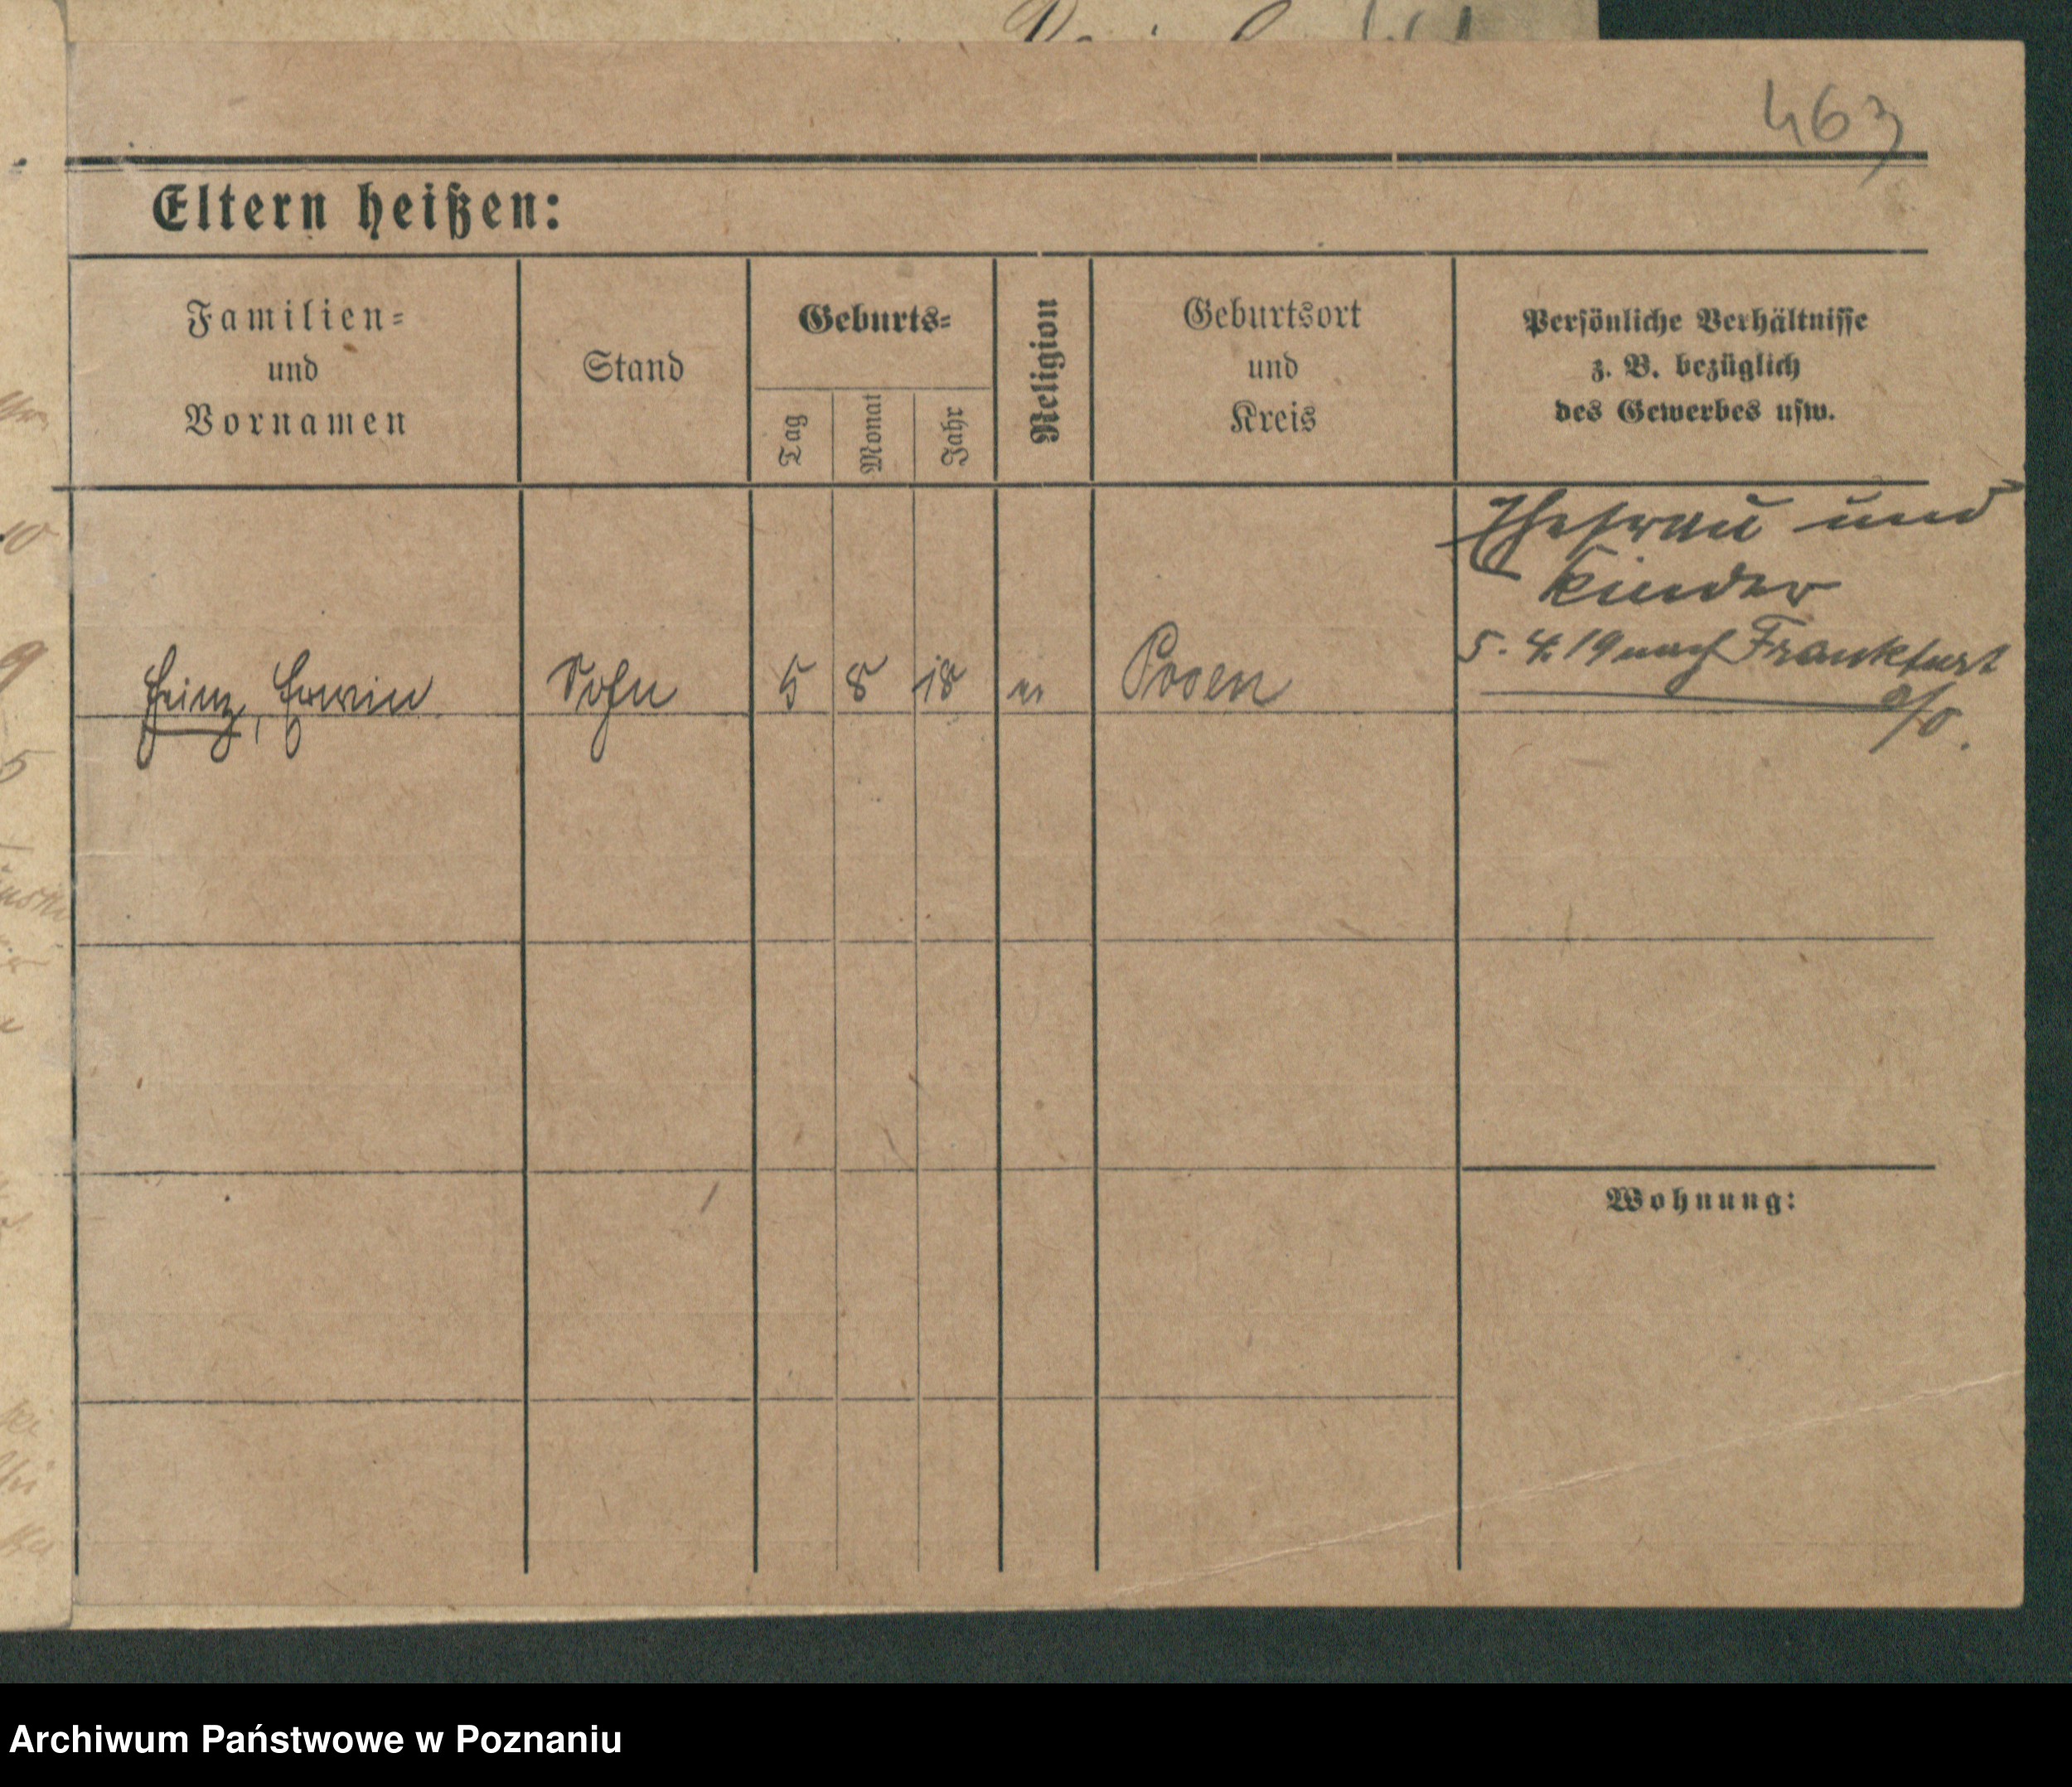 463
Eltern heißen:
Familien=
und
Vornamen
Stand
Geburts=
Tag
Monat
Jahr
Religion
Geburtsort
und
Kreis
Persönliche Verhältnisse
z. B. bezüglich
des Gewerbes usw.
Ehefrau und
Kinder
5. 4. 19 nach Frankfurt
a/O.
Heinz, Erwin
Sohn
5
8
18
Posen
Wohnung:
Archiwum Państwowe w Poznaniu